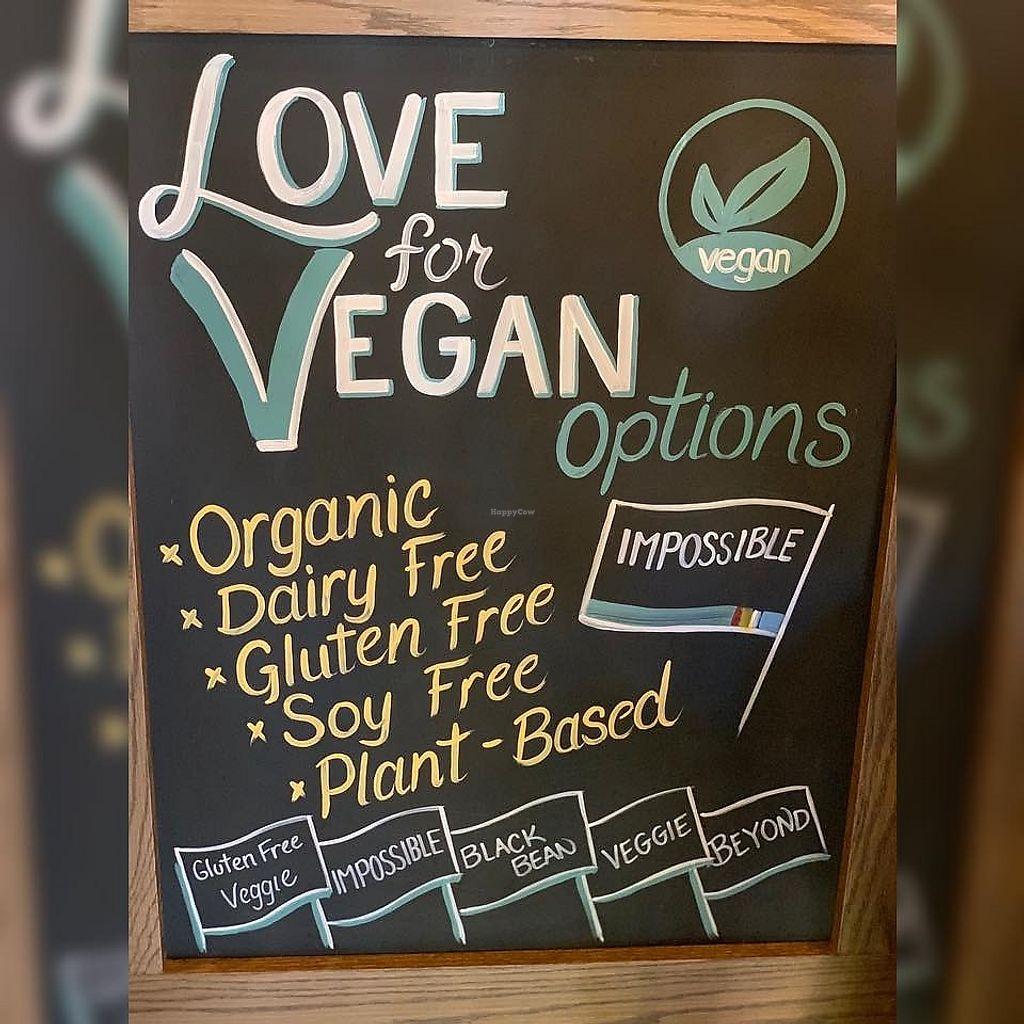 LOVE
for
VEGAN
Options
vegan
× Organic
× Dairy Free
× Gluten Free
× Soy Free
× Plant-Based
IMPOSSIBLE
Gluten Free
Veggie
IMPOSSIBLE
BLACK
BEAN
VEGGIE
BEYOND
HappyCow